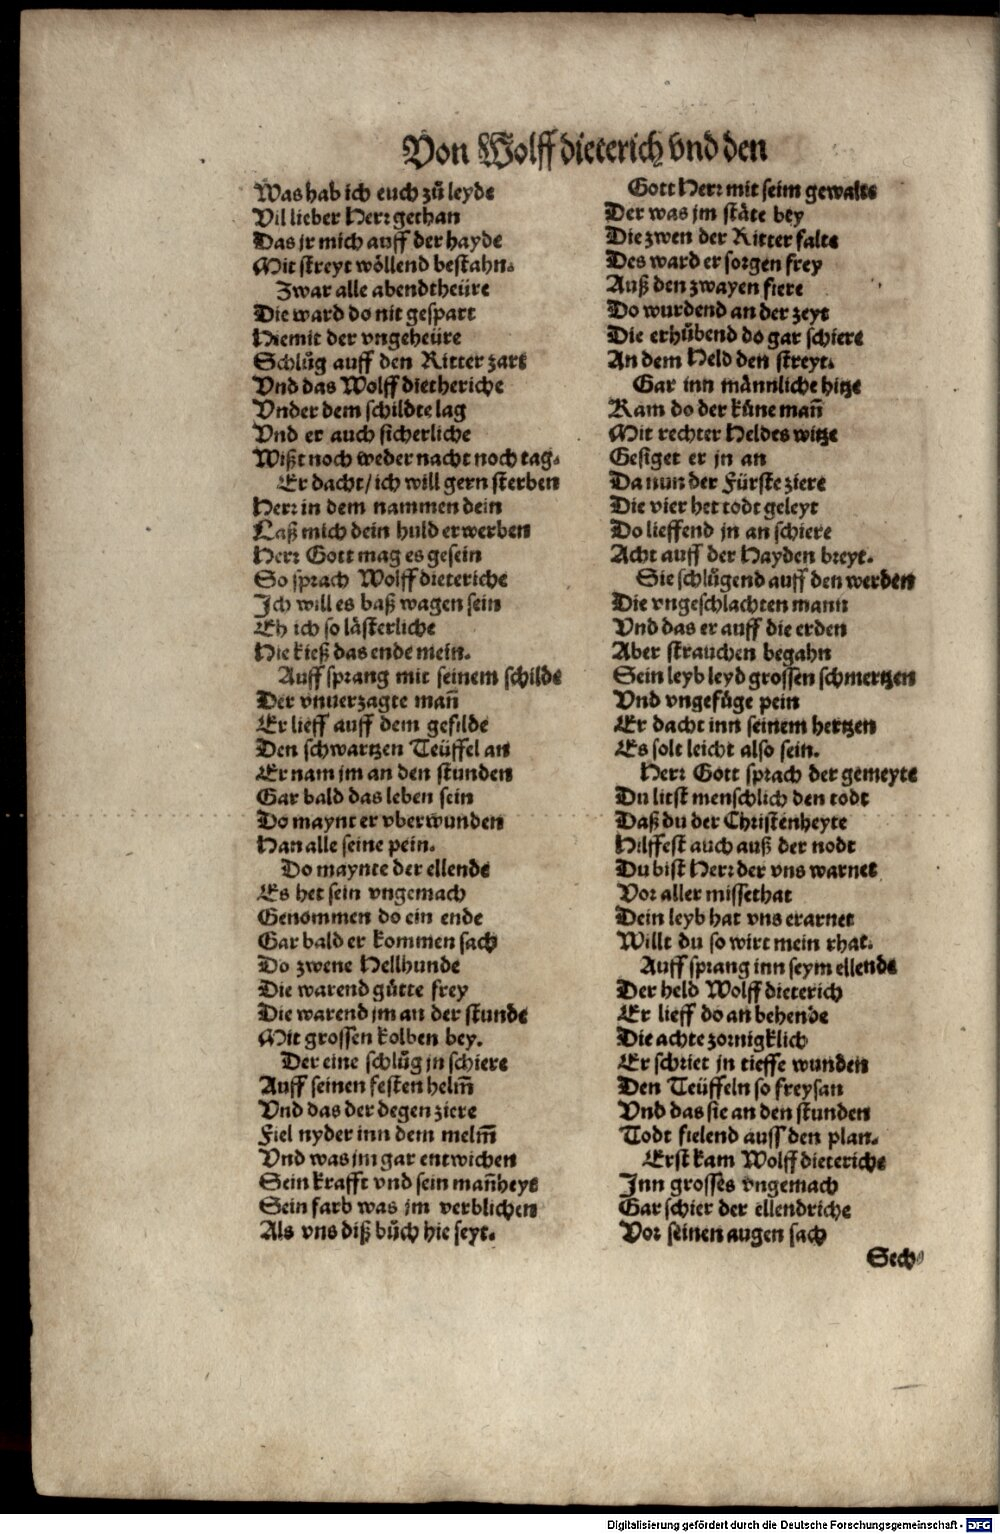 Von Wolff dieterich vnd den
Was hab ich euch zů leyde
Vil lieber Herr gethan
Das jr mich auff der hayde
Mit streyt wöllend bestahn.
Zwar alle abendtheüre
Die ward do nit gespart
Hiemit der vngeheüre
Schlůg auff den Ritter zart
Vnd das Wolff dietheriche
Vnder dem schildte lag
Vnd er auch sicherliche
Wißt noch weder nacht noch tag.
Er dacht / ich will gern sterben
Herr in dem nammen dein
Laß mich dein huld erwerben
Herr Gott mag es gesein
So sprach Wolff dieteriche
Ich will es baß wagen sein
Eh ich so lästerliche
Hie kieß das ende mein.
Auff sprang mit seinem schilde
Der vnuerzagte mañ
Er lieff auff dem gefilde
Den schwartzen Teüffel an
Er nam jm an den stunden
Gar bald das leben sein
Do maynt er vberwunden
Han alle seine pein.
Do maynte der ellende
Es het sein vngemach
Genommen do ein ende
Gar bald er kommen sach
Do zwene Hellhunde
Die warend gůtte frey
Die warend jm an der stunde
Mit grossen kolben bey.
Der eine schlůg jn schiere
Auff seinen festen helm̃
Vnd das der degen ziere
Fiel nyder inn dem melm̃
Vnd was jm gar entwichen
Sein krafft vnd sein mañheyt
Sein farb was jm verblichen
Als vns diß bůch hie seyt.
Gott Herr mit seim gewalte
Der was jm stäte bey
Die zwen der Ritter falte
Des ward er sorgen frey
Auß den zwayen fiere
Do wurdend an der zeyt
Die erhůbend do gar schiere
An dem Held den streyt.
Gar inn männliche hitze
Kam do der küne mañ
Mit rechter Heldes witze
Gesiget er jn an
Da nun der Fürste ziere
Die vier het todt geleyt
Do lieffend jn an schiere
Acht auff der Hayden breyt.
Sie schlůgend auff den werden
Die vngeschlachten mann
Vnd das er auff die erden
Aber strauchen begahn
Sein leyb leyd grossen schmertzen
Vnd vngefůge pein
Er dacht inn seinem hertzen
Es solt leicht also sein.
Herr Gott sprach der gemeyte
Du litst menschlich den todt
Daß du der Christenheyte
Hilffest auch auß der nodt
Du bist Herr der vns warnet
Vor aller missethat
Dein leyb hat vns erarnet
Willt du so wirt mein rhat.
Auff sprang inn seym ellende
Der held Wolff dieterich
Er lieff do an behende
Die achte zornigklich
Er schriet jn tieffe wunden
Den Teüffeln so freysan
Vnd das sie an den stunden
Todt fielend auff den plan.
Erst kam Wolff dieteriche
Inn grosses vngemach
Gar schier der ellendriche
Vor seinen augen sach
Sech⸗
Digitalisierung gefördert durch die Deutsche Forschungsgemeinschaft - DFG